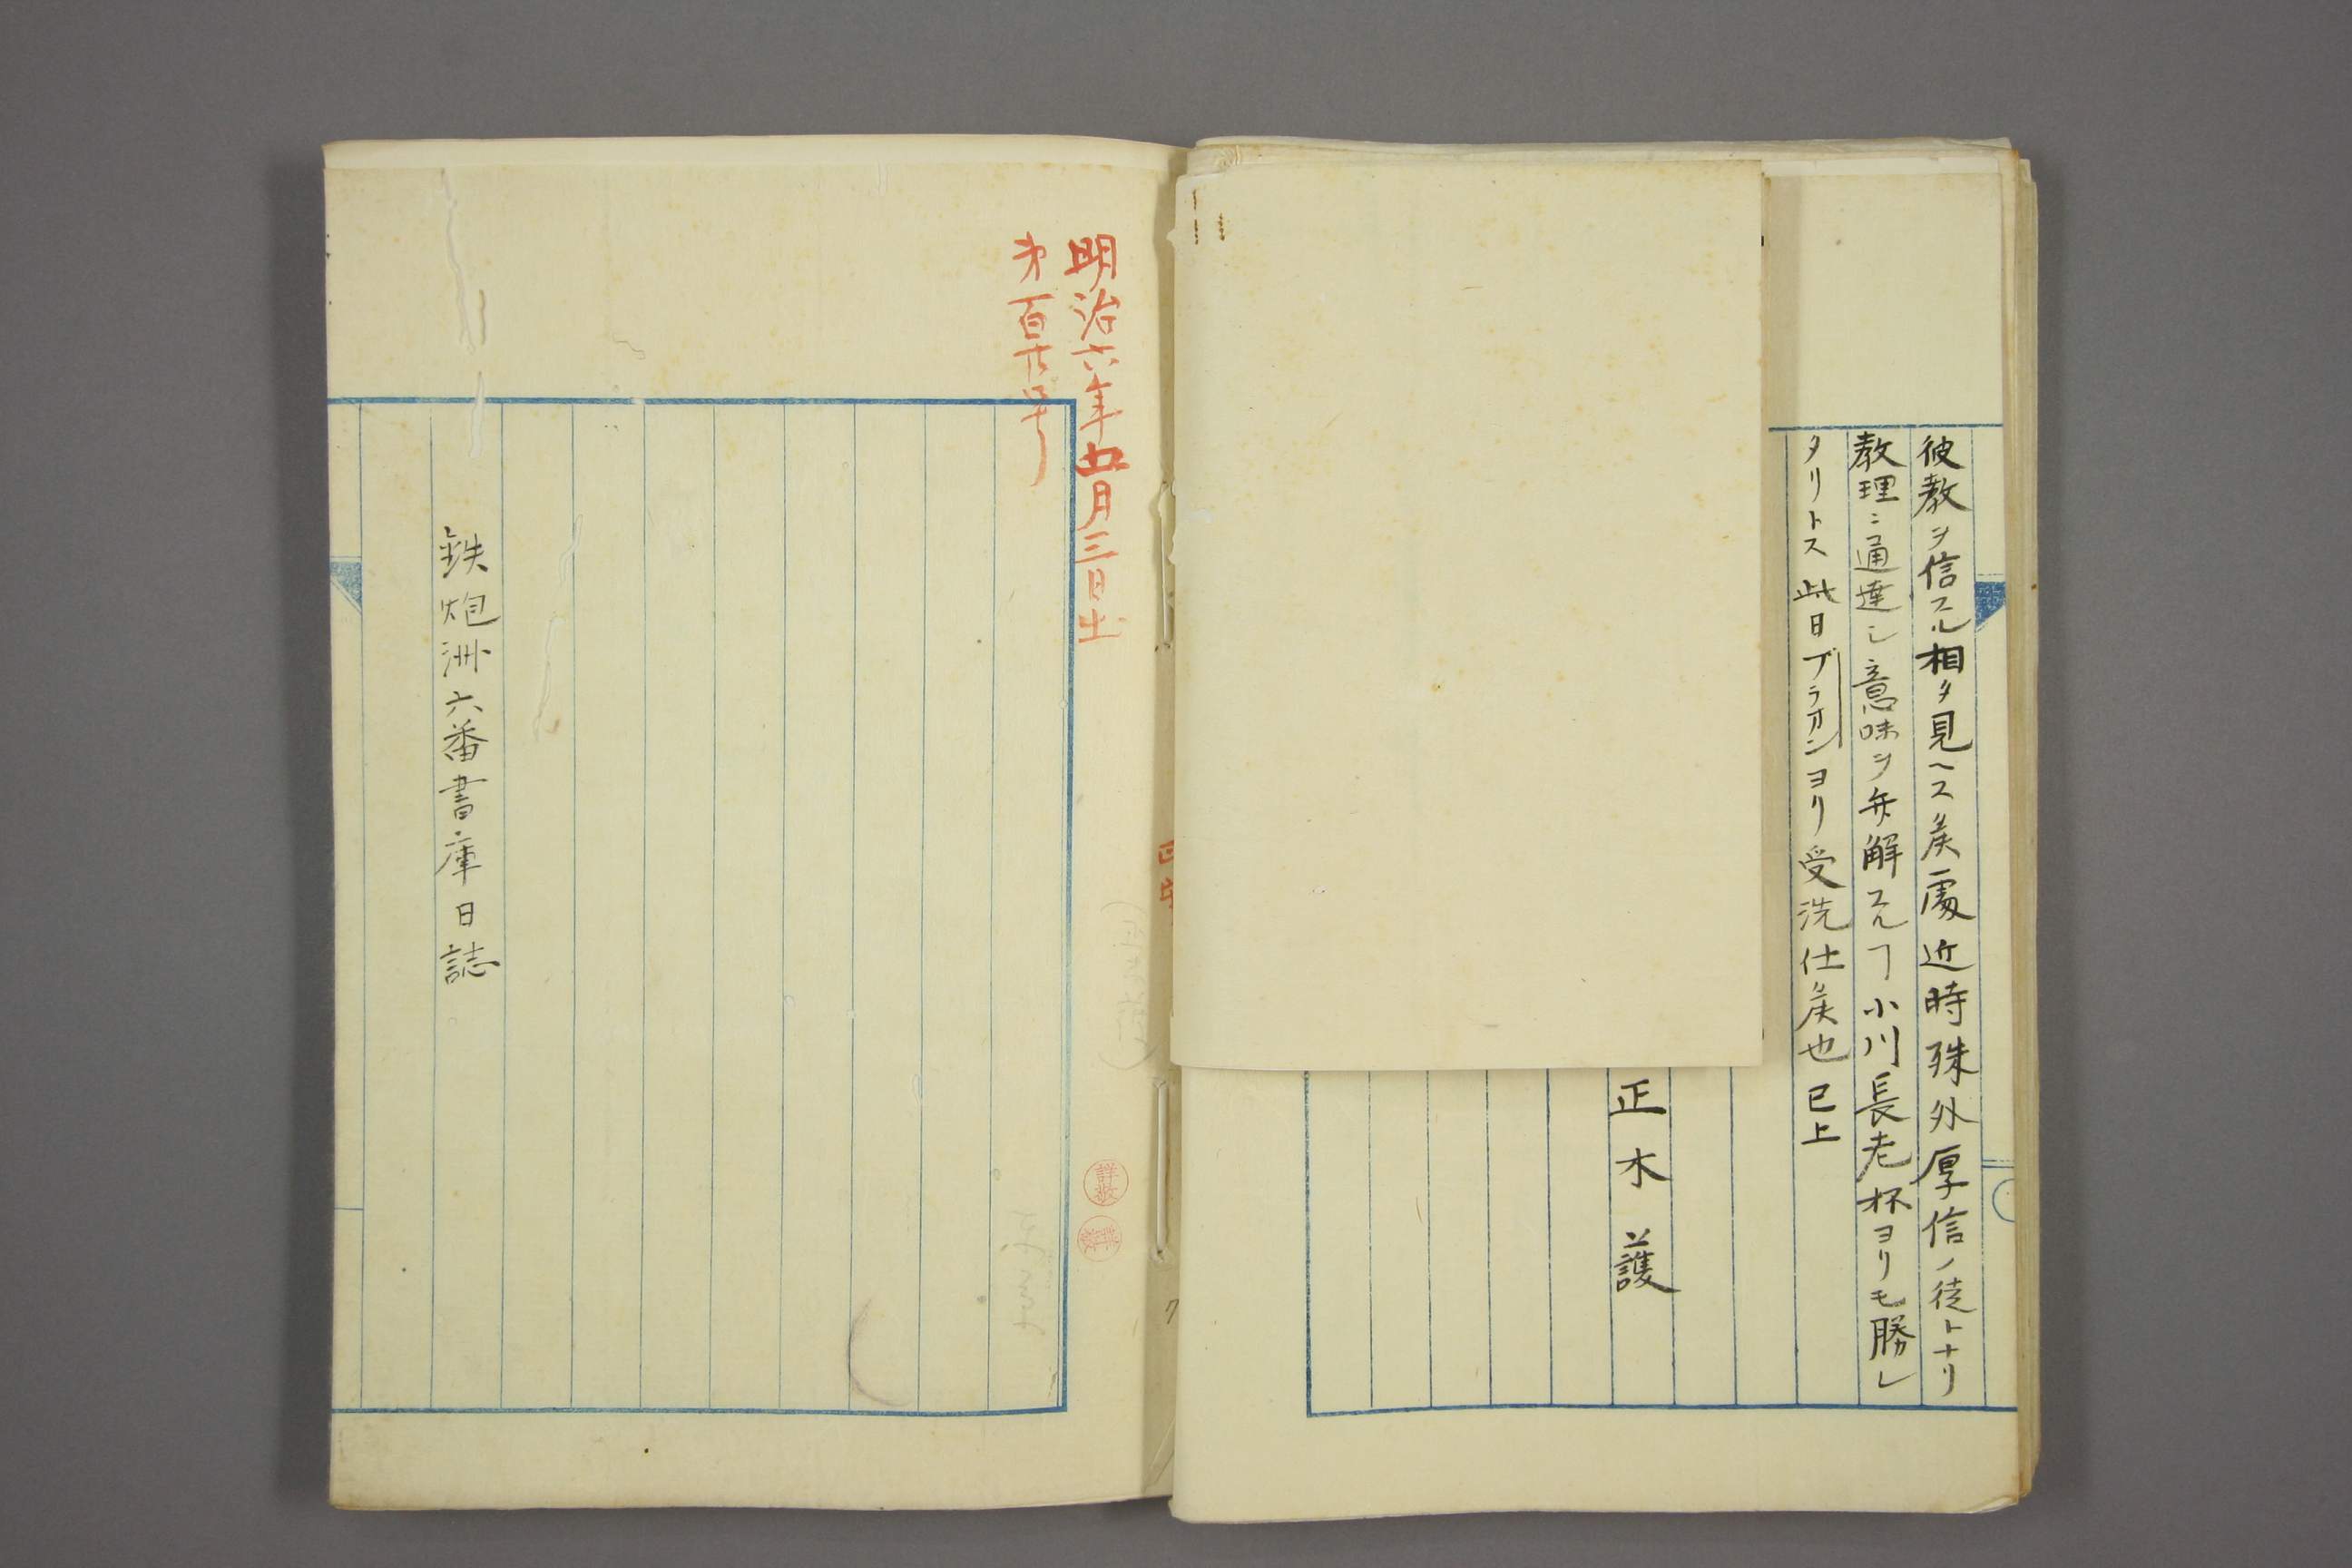 彼教ヲ信スル相タ見ヘス矦處近時殊外厚信ノ徒トナリ
教理ニ通達シ意味ヲ弁解スルヿ小川長老杯ヨリモ勝レ
タリトス此日ブラオンヨリ受洗仕矦也已上
正木護
明治六年五月三日出
百廿号
鉄炮洲六番書庫日誌